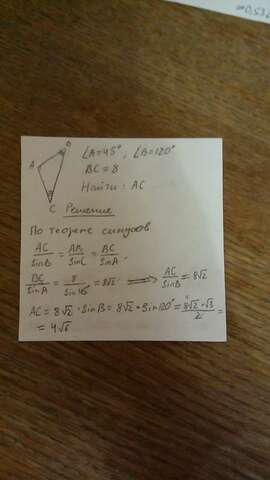 ≈0,53
B
∠A=45°, ∠B=120°
A
BC=8
Найти: AC
C Решение
По теореме синусов
AC/sinB = AB/sinC = BC/sinA.
BC/sinA = 8/sin45° = 8√2 ⟹ AC/sinB = 8√2
AC = 8√2 · sinB = 8√2 · sin120° = 8√2·√3/2 =
= 4√6